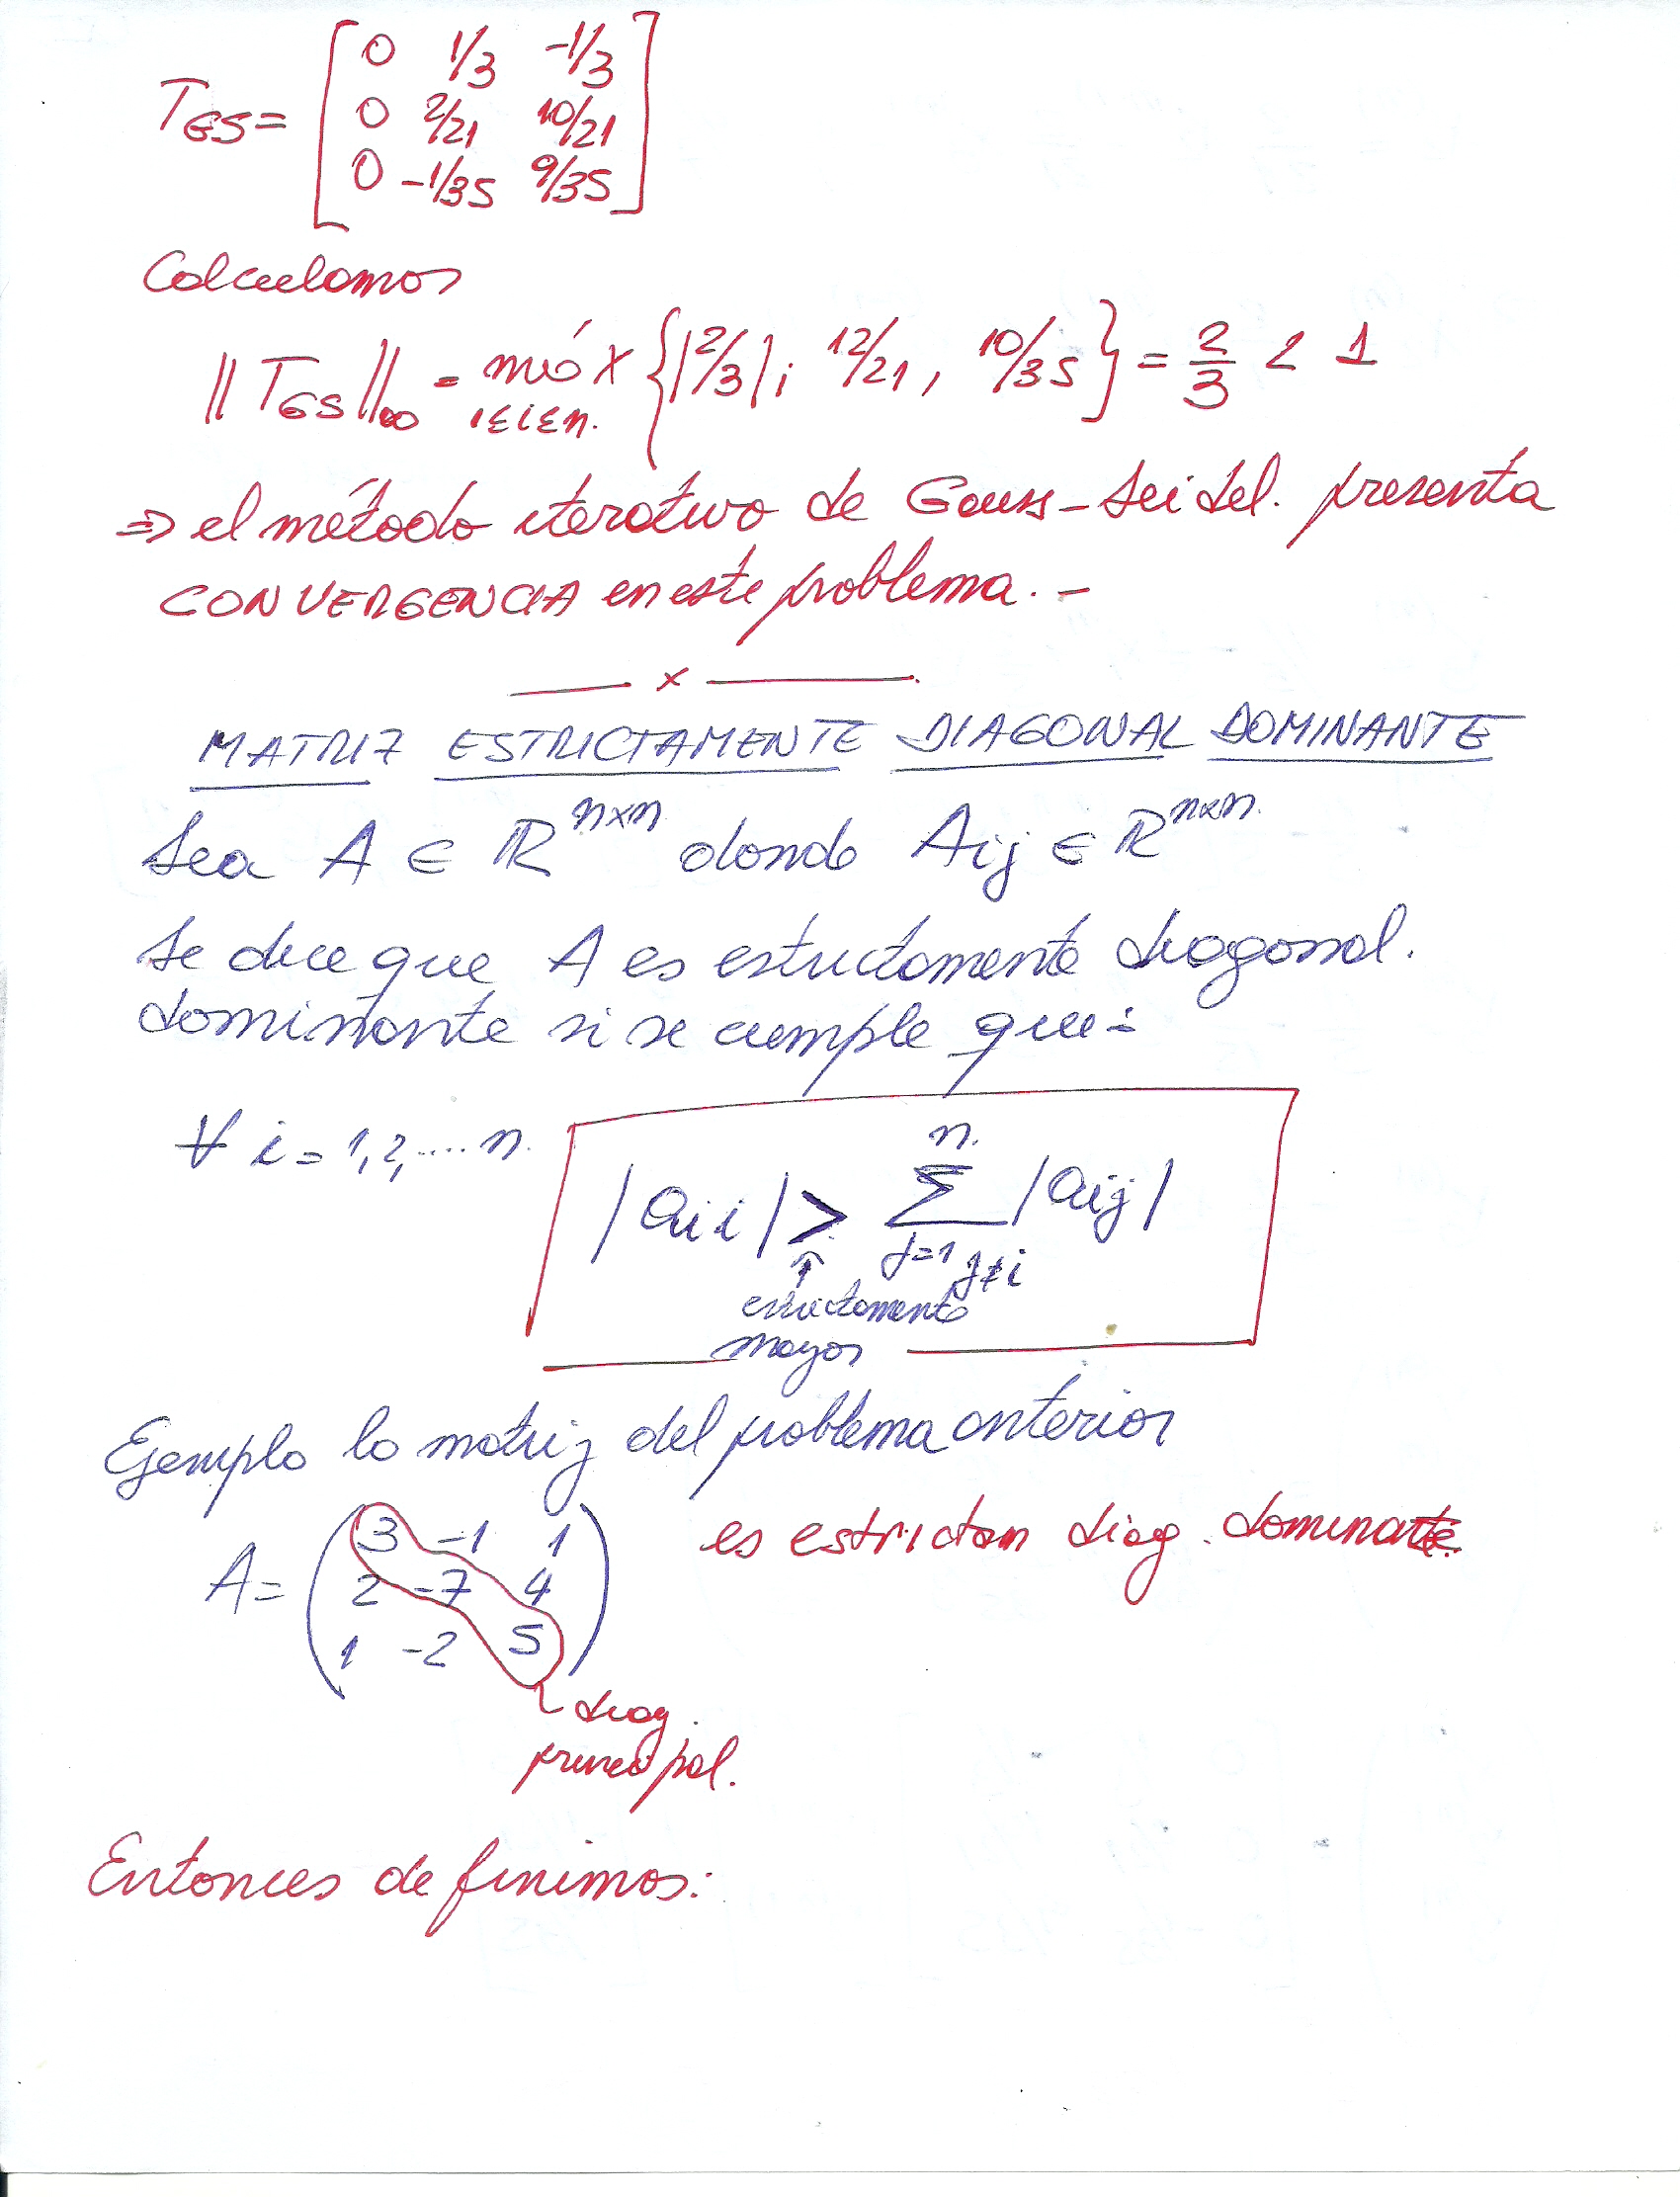 T_GS = [ 0 1/3 -1/3
0 2/21 10/21
0 -1/35 9/35 ]
Calculamos
|| T_GS ||∞ = máx {|2/3|; 12/21, 10/35} = 2/3 < 1
1≤i≤n.
⇒ el método iterativo de Gauss-Seidel. presenta
CONVERGENCIA en este problema.-
x
MATRIZ ESTRICTAMENTE DIAGONAL DOMINANTE
Sea A ∈ ℝ^{n×n} donde A_ij ∈ ℝ^{n×n}.
Se dice que A es estrictamente diagonal.
dominante si se cumple que:
∀ i = 1,2,....n. |a_ii| > ∑_{j=1 j≠i}^{n.} |a_ij|
↑
estrictamente
mayor
Ejemplo la matriz del problema anterior
A = ( 3 -1 1
2 -7 4
1 -2 5 ) es estrictam diag. dominante.
diag.
principal.
Entonces definimos: